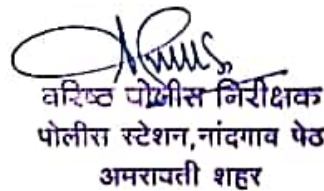 वरिष्ठ पोलीस निरीक्षक
पोलीस स्टेशन,नांदगाव पेठ
अमरावती शहर